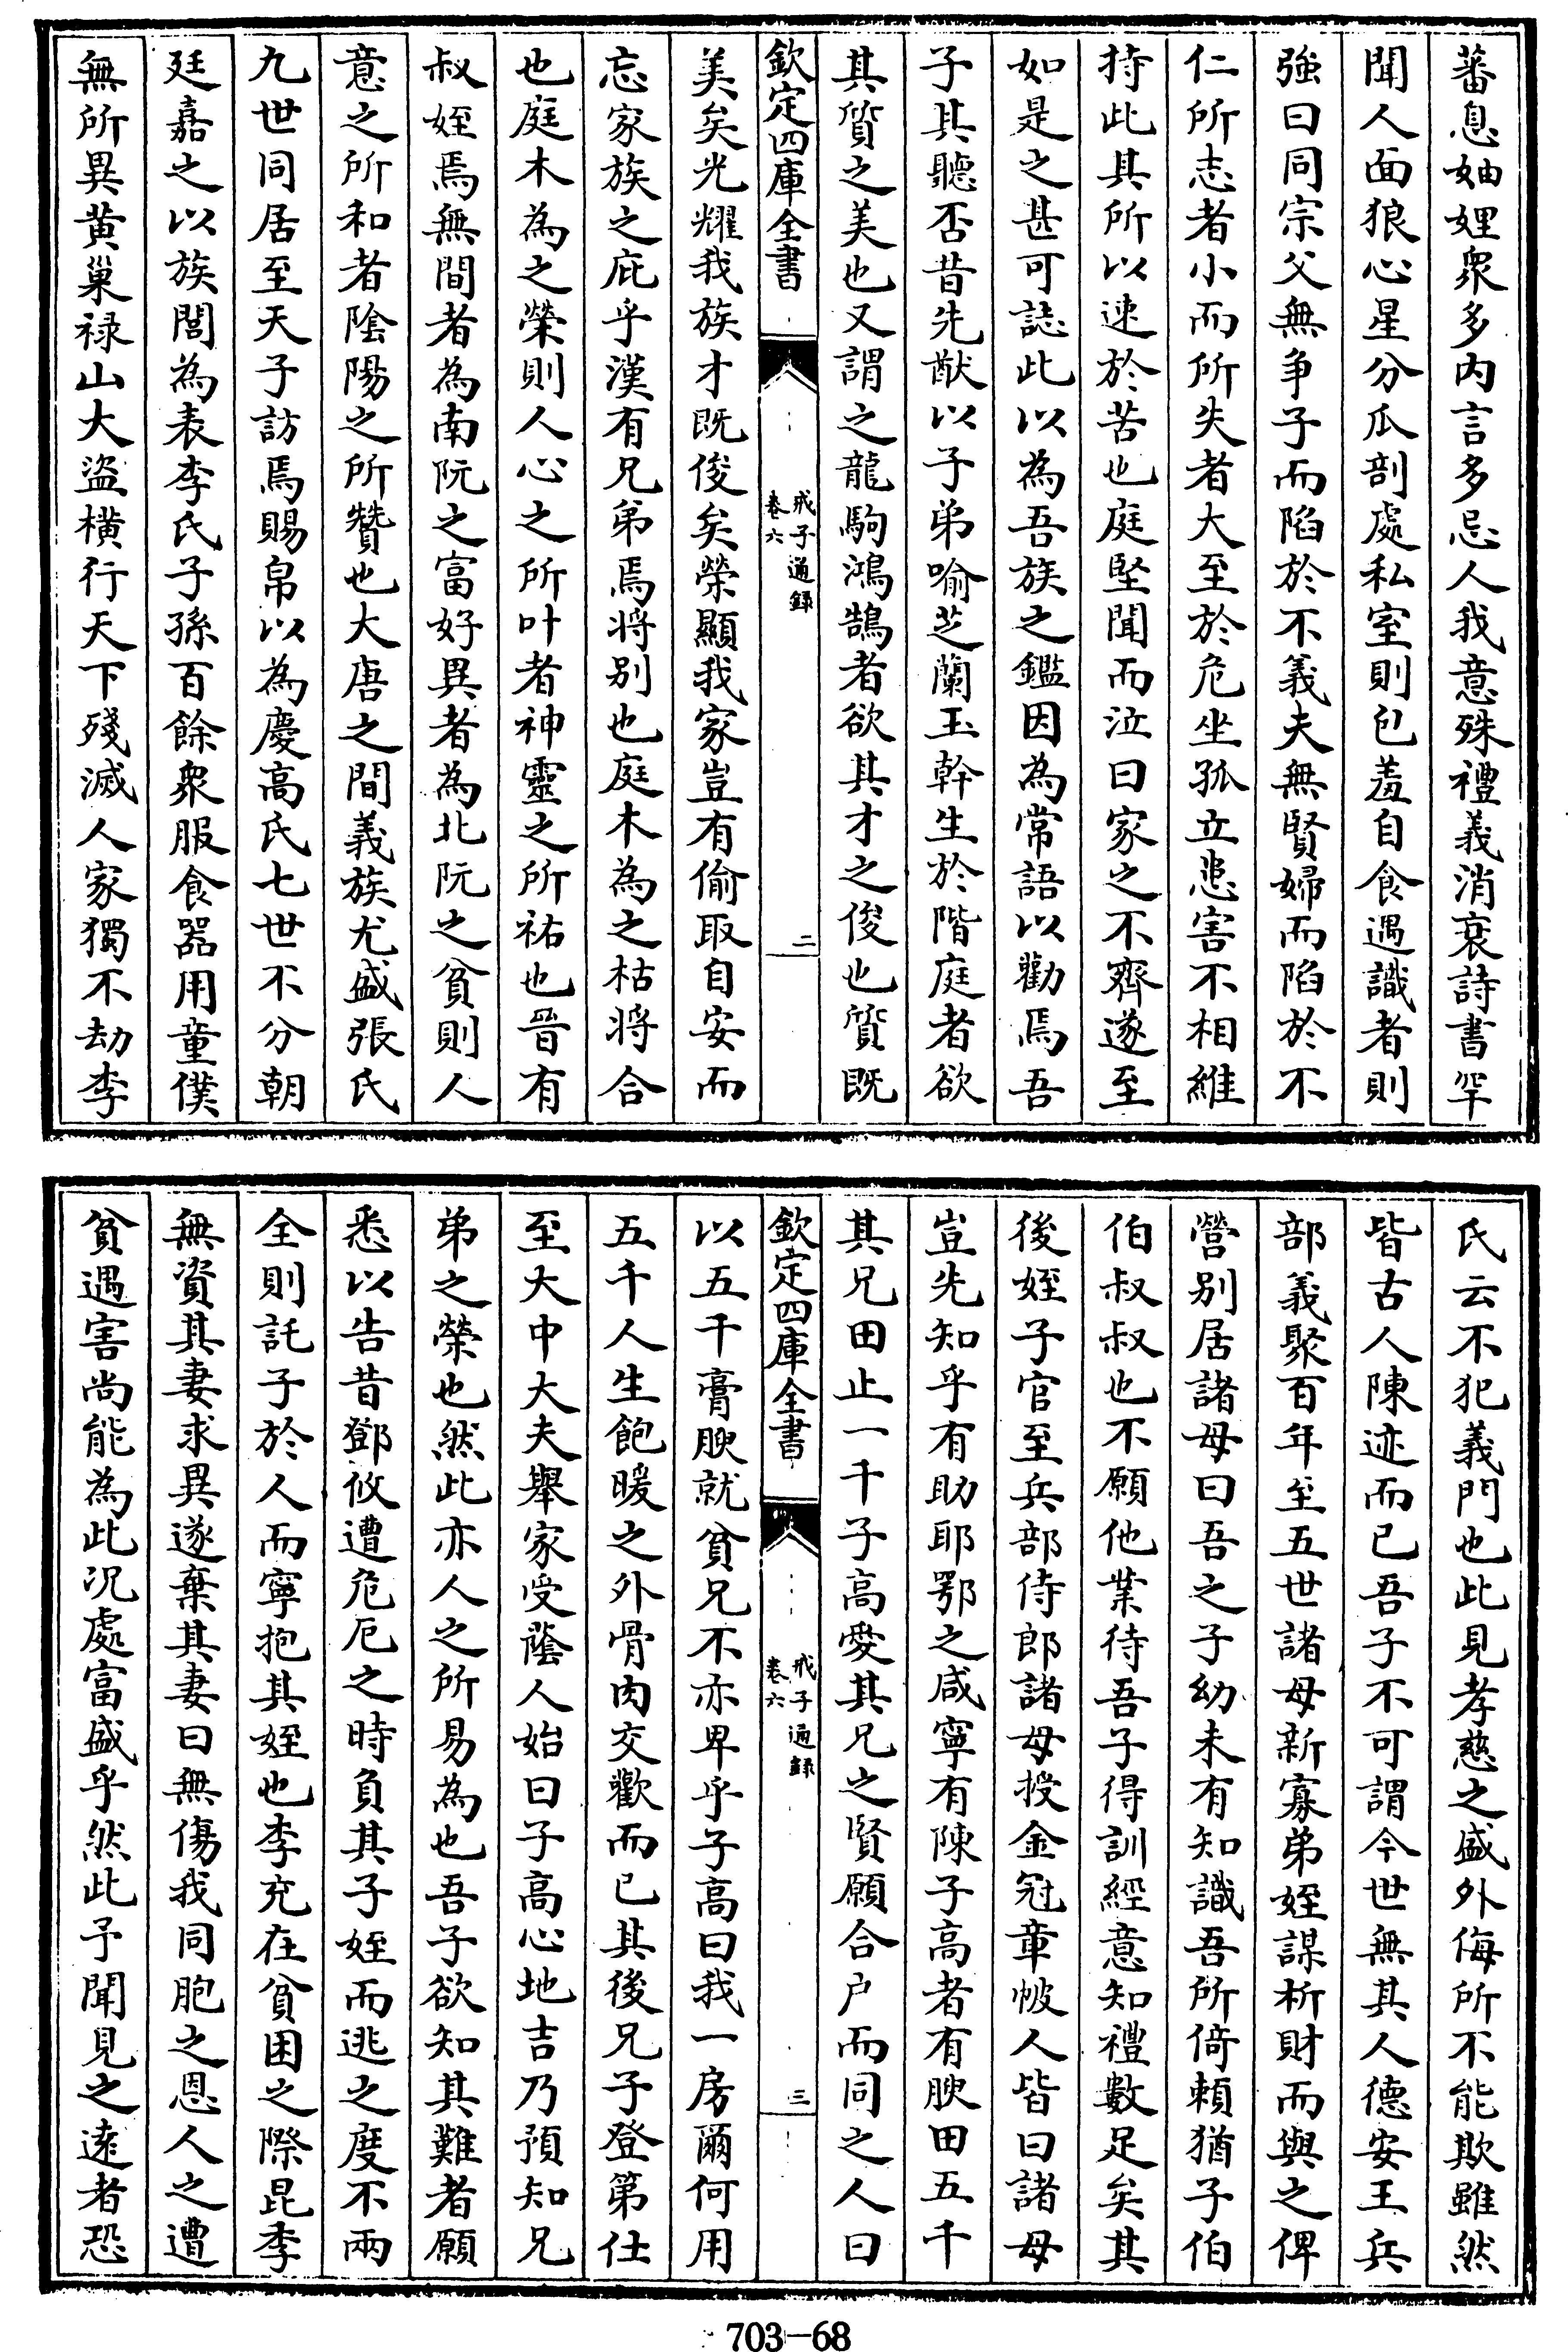 蕃息妯娌衆多内言多忌人我意殊禮義消衰詩書罕
聞人面狼心星分瓜剖處私室則包羞自食遇識者則
強曰同宗父無争子而陷於不義夫無賢婦而陷於不
仁所志者小而所失者大至於危坐孤立患害不相維
持此其所以速於苦也庭堅聞而泣曰家之不齊遂至
如是之甚可誌此以為吾族之鑑因為常語以勸焉吾
子其聽否昔先猷以子弟喻芝蘭玉幹生於階庭者欲
其質之美也又謂之龍駒鴻鵠者欲其才之俊也質既
欽定四庫全書
戒子通録
卷六
二
美矣光耀我族才既俊矣榮顯我家豈有偷取自安而
忘家族之庇乎漢有兄弟焉將别也庭木為之枯將合
也庭木為之榮則人心之所叶者神靈之所祐也晉有
叔姪焉無間者為南阮之富好異者為北阮之貧則人
意之所和者陰陽之所贊也大唐之間義族尤盛張氏
九世同居至天子訪焉賜帛以為慶高氏七世不分朝
廷嘉之以族閭為表李氏子孫百餘衆服食器用童僕
無所異黄巢禄山大盜横行天下殘滅人家獨不劫李
氏云不犯義門也此見孝慈之盛外侮所不能欺雖然
皆古人陳迹而已吾子不可謂今世無其人德安王兵
部義聚百年至五世諸母新寡弟姪謀析財而與之俾
營别居諸母曰吾之子幼未有知識吾所倚頼猶子伯
伯叔叔也不願他業待吾子得訓經意知禮數足矣其
後姪子官至兵部侍郎諸母授金冠章帔人皆曰諸母
豈先知乎有助耶鄂之咸寧有陳子高者有腴田五千
其兄田止一千子高愛其兄之賢願合户而同之人曰
欽定四庫全書
戒子通録
卷六
三
以五千膏腴就貧兄不亦卑乎子高曰我一房爾何用
五千人生飽暖之外骨肉交歡而已其後兄子登第仕
至大中大夫舉家受䕃人始曰子高心地吉乃預知兄
弟之榮也然此亦人之所易為也吾子欲知其難者願
悉以告昔鄧攸遭危厄之時負其子姪而逃之度不兩
全則託子於人而寧抱其姪也李充在貧困之際昆李
無資其妻求異遂棄其妻曰無傷我同胞之恩人之遭
貧遇害尚能為此况處富盛乎然此予聞見之逺者恐
703-68